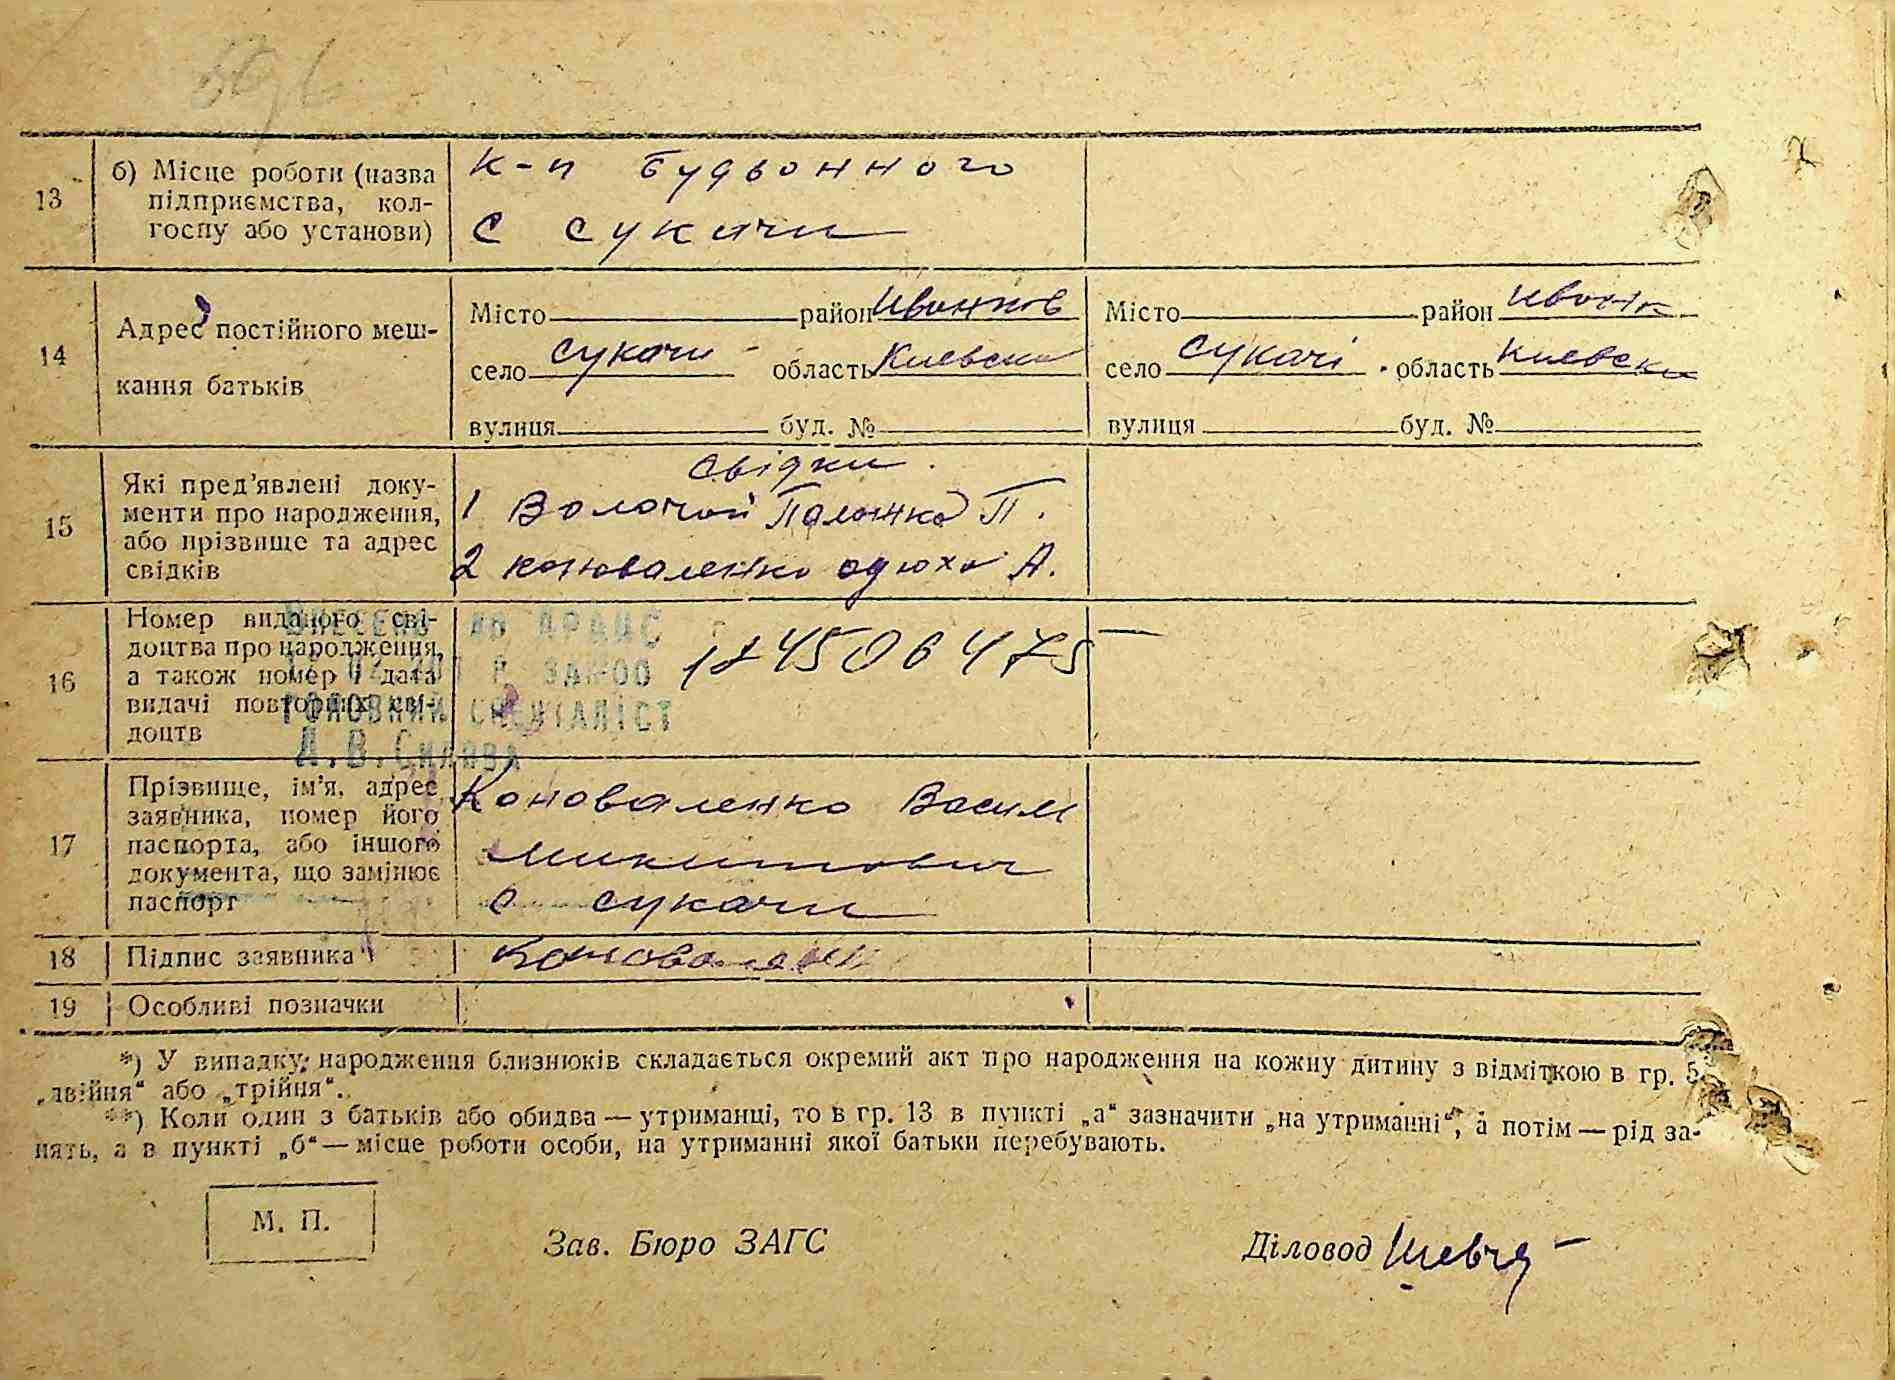 13
б) Місце роботи (назва
підприємства, кол-
госпу або установи)
к-п Будьонного
с сукачи
14
Адрес постійного меш-
кання батьків
Місто район Иванков
село сукачи область Киевска
вулиця буд. №
Місто район Иванк
село сукачі область Киевска
вулиця буд. №
15
Які пред’явлені доку-
менти про народження,
або прізвище та адрес
свідків
свідки
1 Волочай Палажка П.
2 Коноваленко А.
16
Номер виданого сві-
доцтва про народження,
а також номер і дата
видачі повторних сві-
доцтв
Внесено до ДРАЦС
ГОЛОВНИЙ СПЕЦІАЛІСТ
17
Прізвище, ім’я, адрес
заявника, номер його
паспорта, або іншого
документа, що замінює
паспорт
Коноваленко Васил
Микитович
с сукачи
18
Підпис заявника
19
Особливі позначки
*) У випадку народження близнюків складається окремий акт про народження на кожну дитину з відміткою в гр. 5
„двійня“ або „трійня“.
**) Коли один з батьків або обидва — утриманці, то в гр. 13 в пункті „а“ зазначити „на утриманні“, а потім — рід за-
нять, а в пункті „б“ — місце роботи особи, на утриманні якої батьки перебувають.
М. П.
Зав. Бюро ЗАГС
Діловод